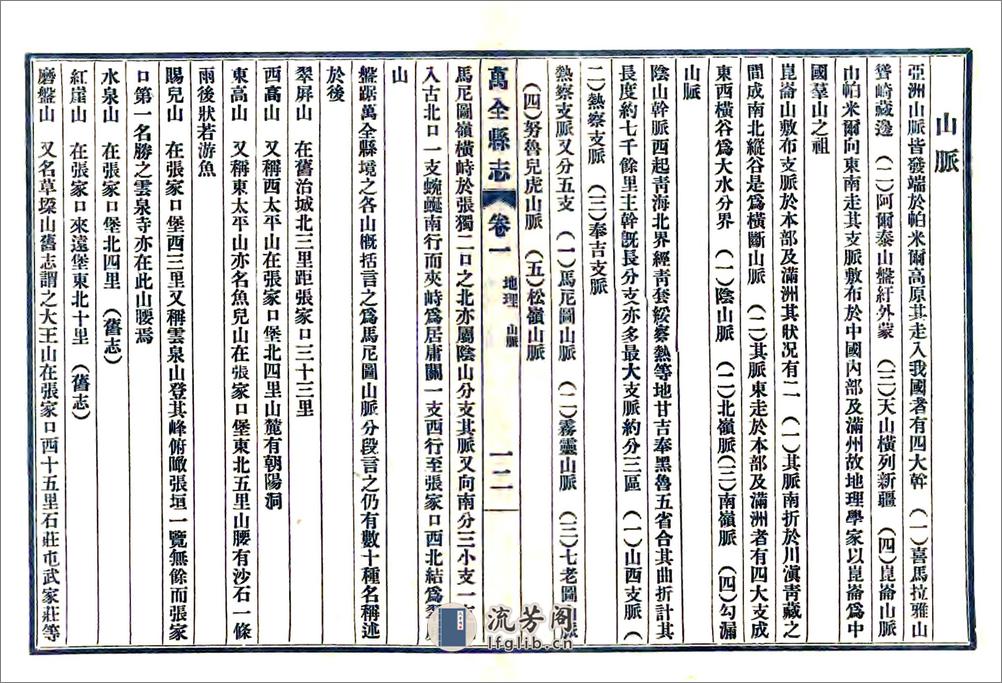 山脈
亞洲山脈皆發端於帕米爾高原其走入我國者有四大幹　(一)喜馬拉雅山
聳崎藏邊　(二)阿爾泰山盤紆外蒙　(三)天山橫列新疆　(四)崑崙山脈
由帕米爾向東南走其支脈敷布於中國內部及滿州故地理學家以崑崙爲中
國羣山之祖
崑崙山敷布支脈於本部及滿洲其狀况有二　(一)其脈南折於川滇青藏之
間成南北縱谷是爲橫斷山脈　(二)其脈東走於本部及滿洲者有四大支成
東西橫谷爲大水分界　(一)陰山脈　(二)北嶺脈　(三)南嶺脈　(四)勾漏
山脈
陰山幹脈西起青海北界經青套綏察熱等地甘吉奉黑魯五省合其曲折計其
長度約七千餘里主幹旣長分支亦多最大支脈約分三區　(一)山西支脈　(
二)熱察支脈　(三)奉吉支脈
熱察支脈又分五支　(一)馬尼圖山脈　(二)霧靈山脈　(三)七老圖山脈
(四)努魯兒虎山脈　(五)松嶺山脈
萬全縣志　卷一　地理　山脈　一二
馬尼圖嶺橫峙於張獨二口之北亦屬陰山分支其脈又向南分三小支一
入古北口一支蜿蜒南行而夾峙爲居庸關一支西行至張家口西北結爲
山
盤踞萬全縣境之各山槪括言之爲馬尼圖山脈分段言之仍有數十種名稱述
於後
翠屏山　在舊治城北三里距張家口三十三里
西高山　又稱西太平山在張家口堡北四里山麓有朝陽洞
東高山　又稱東太平山亦名魚兒山在張家口堡東北五里山腰有沙石一條
雨後狀若游魚
賜兒山　在張家口堡西三里又稱雲泉山登其峰俯瞰張垣一覽無餘而張家
口第一名勝之雲泉寺亦在此山腰焉
水泉山　在張家口堡北四里　(舊志)
紅崖山　在張家口來遠堡東北十里　(舊志)
磨盤山　又名草垜山舊志謂之大王山在張家口西十五里石莊屯武家莊等
流芳閣
lfglib.cn